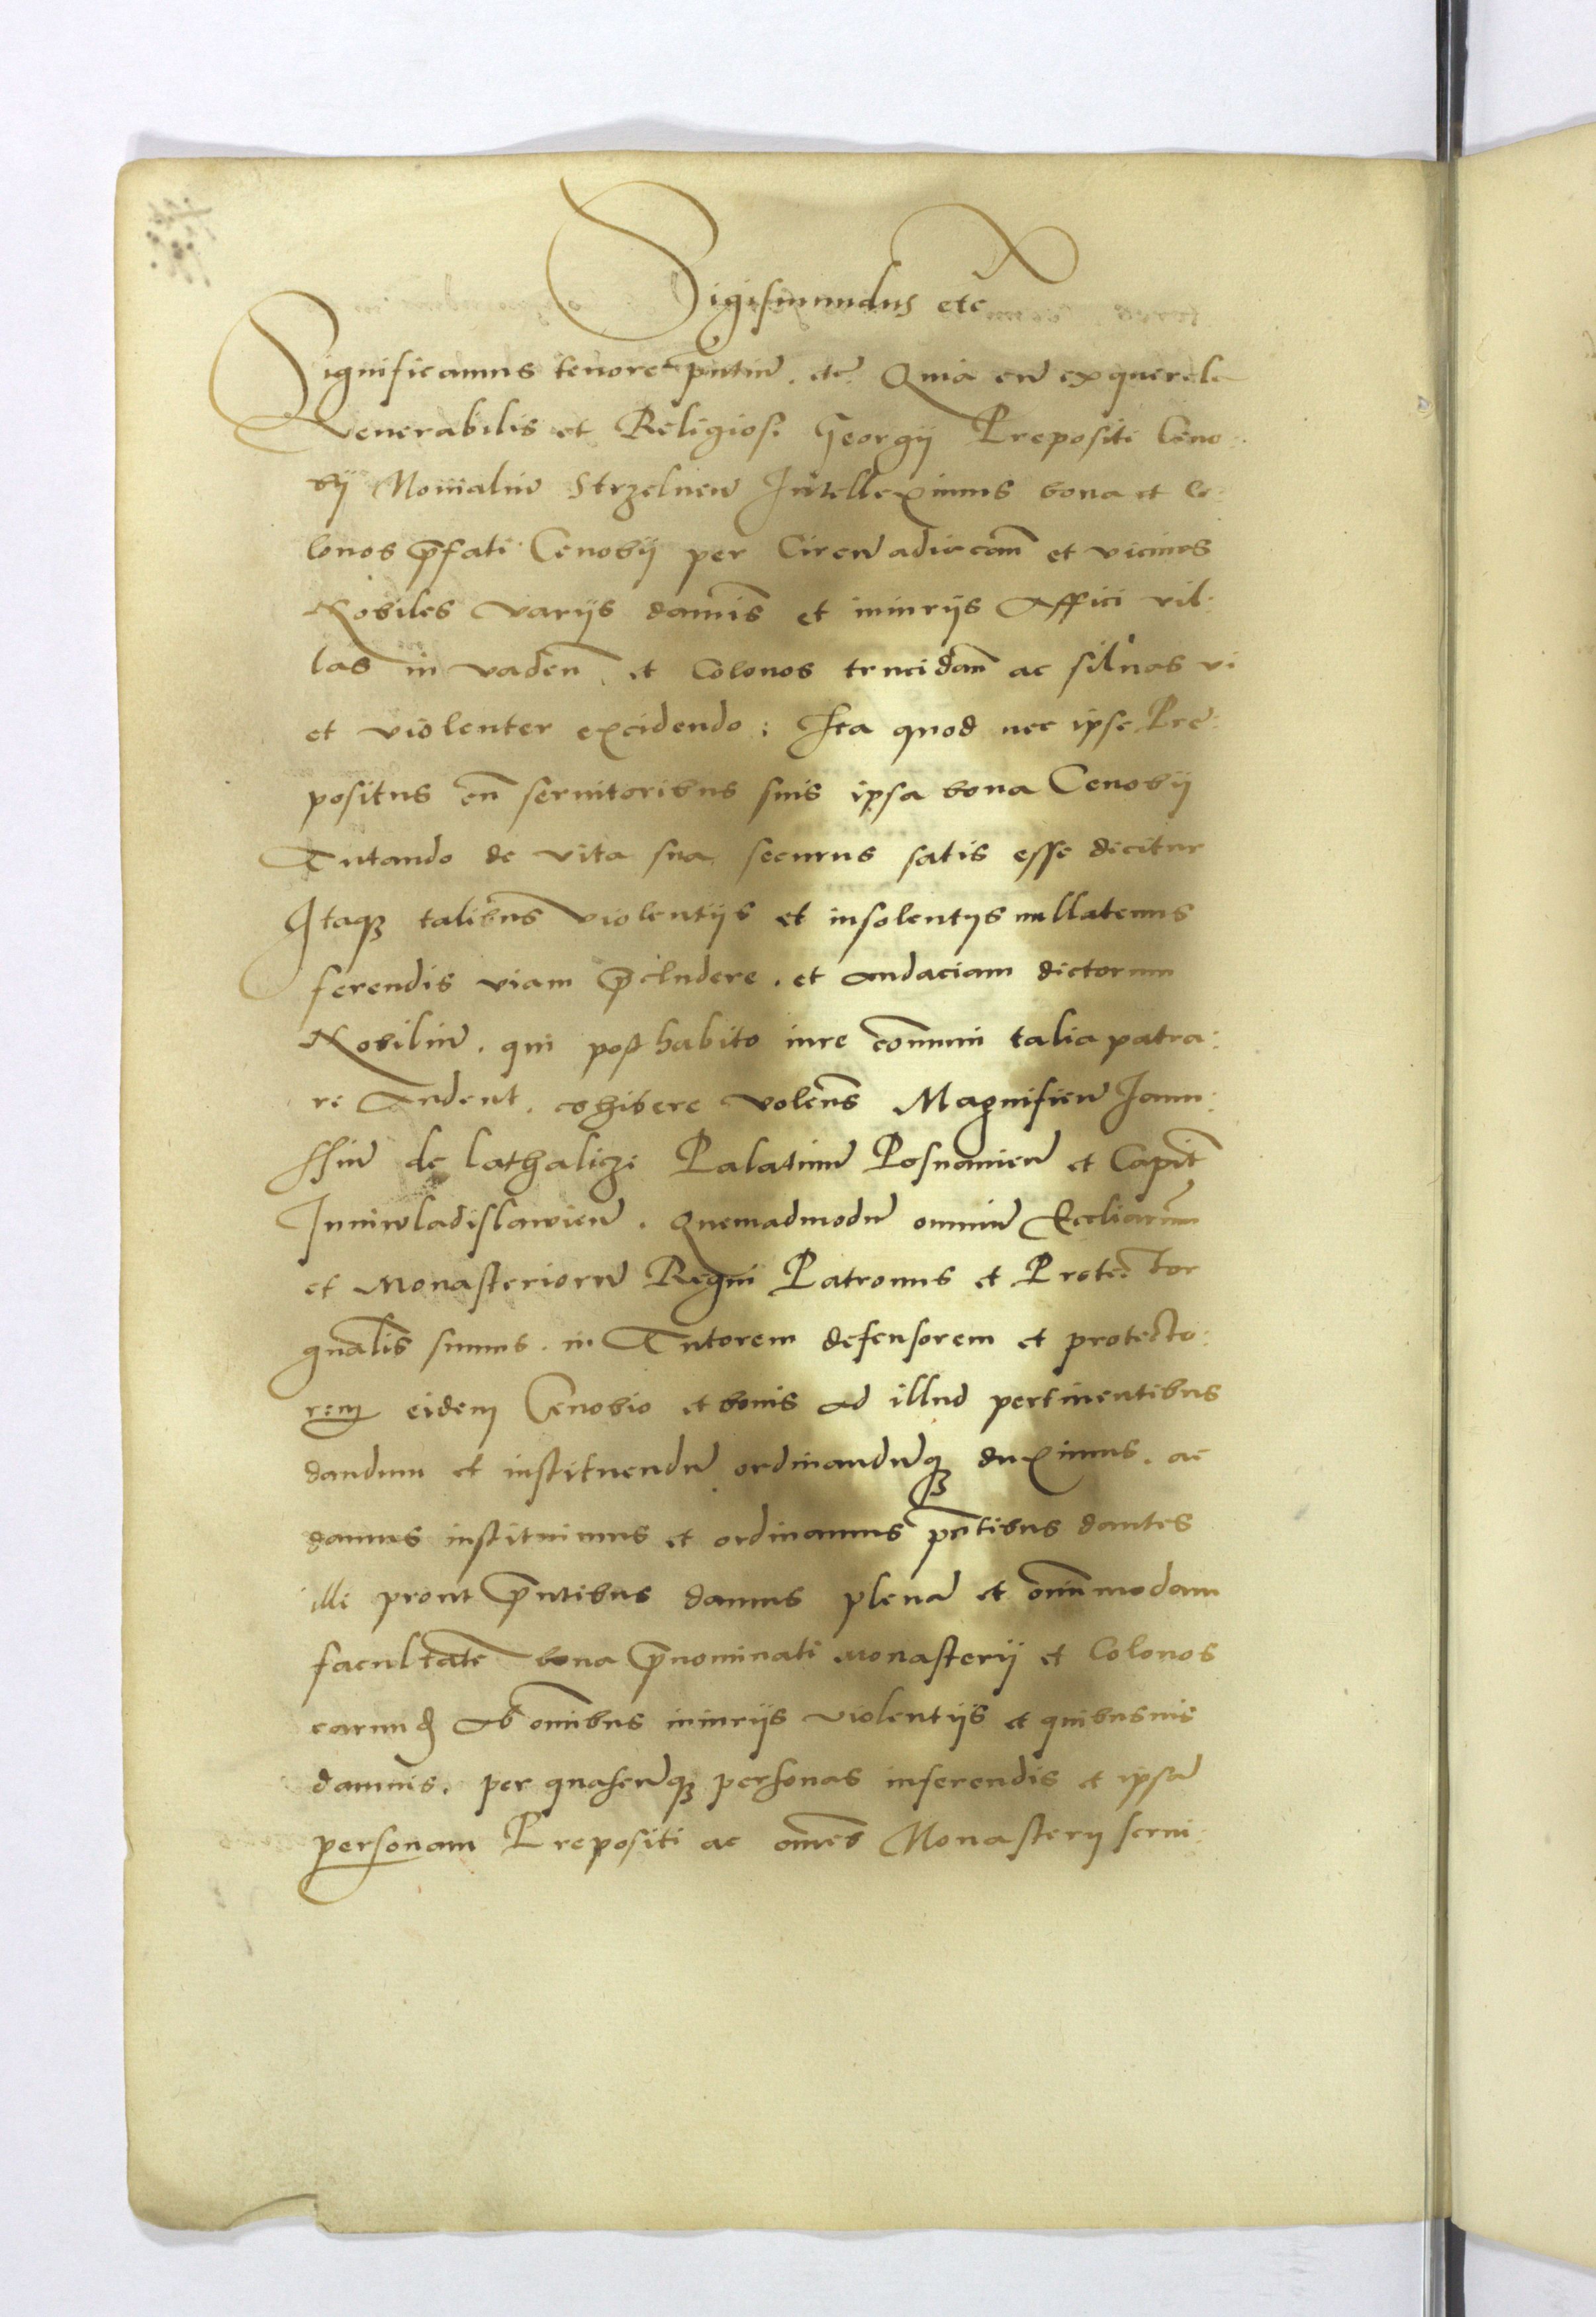 Sigismundus etc
Significamus tenore pntiu. etc. Quia cu ex querela
Venerabilis et Religiosi Georgij Prepositi Ceno:
bij Monialiu Strzelnen Intelleximus bona et co:
lonos pfati Cenobij per Circu adiacean et vicinos
Nobiles varijs damnis et iniurijs Affici vil:
las in vaden et Colonos trucidan ac siluas vi
et violenter excidendo: Ita quod nec ipse Pre:
positus cu seruitoribus suis ipsa bona Cenobij
Tutando de vita sua securus satis esse dicitur
Itaqz talibus violentijs et insolentijs nullatenus
ferendis viam pcludere. et audaciam dictorum
Nobiliu. qui posthabito iure comuni talia patra:
re Audent. cohibere volens Magnificu Janu:
ssiu de lathaliczi Palatinu Posnanien et Capit
Juniwladislawien. Quemadmodu omniu Eccliarum
et Monasterioru Regni Patronus et Protector
gnalis sumus. in Tutorem defensorem et protecto:
rem eidem Cenobio et bonis ad illud pertinentibus
dandum et instituendu ordinanduqz duximus. ac
damus instituimus et ordinamus pntibus dantes
illi prout pntibus damus plena et omnimodam
facultate bona pnominati Monasterij et Colonos
earund ab omibus iniurijs violentijs et quibusuis
damnis. per quascuqz personas inferendis et ipsa
personam Prepositi ac omes Monasterij serui: